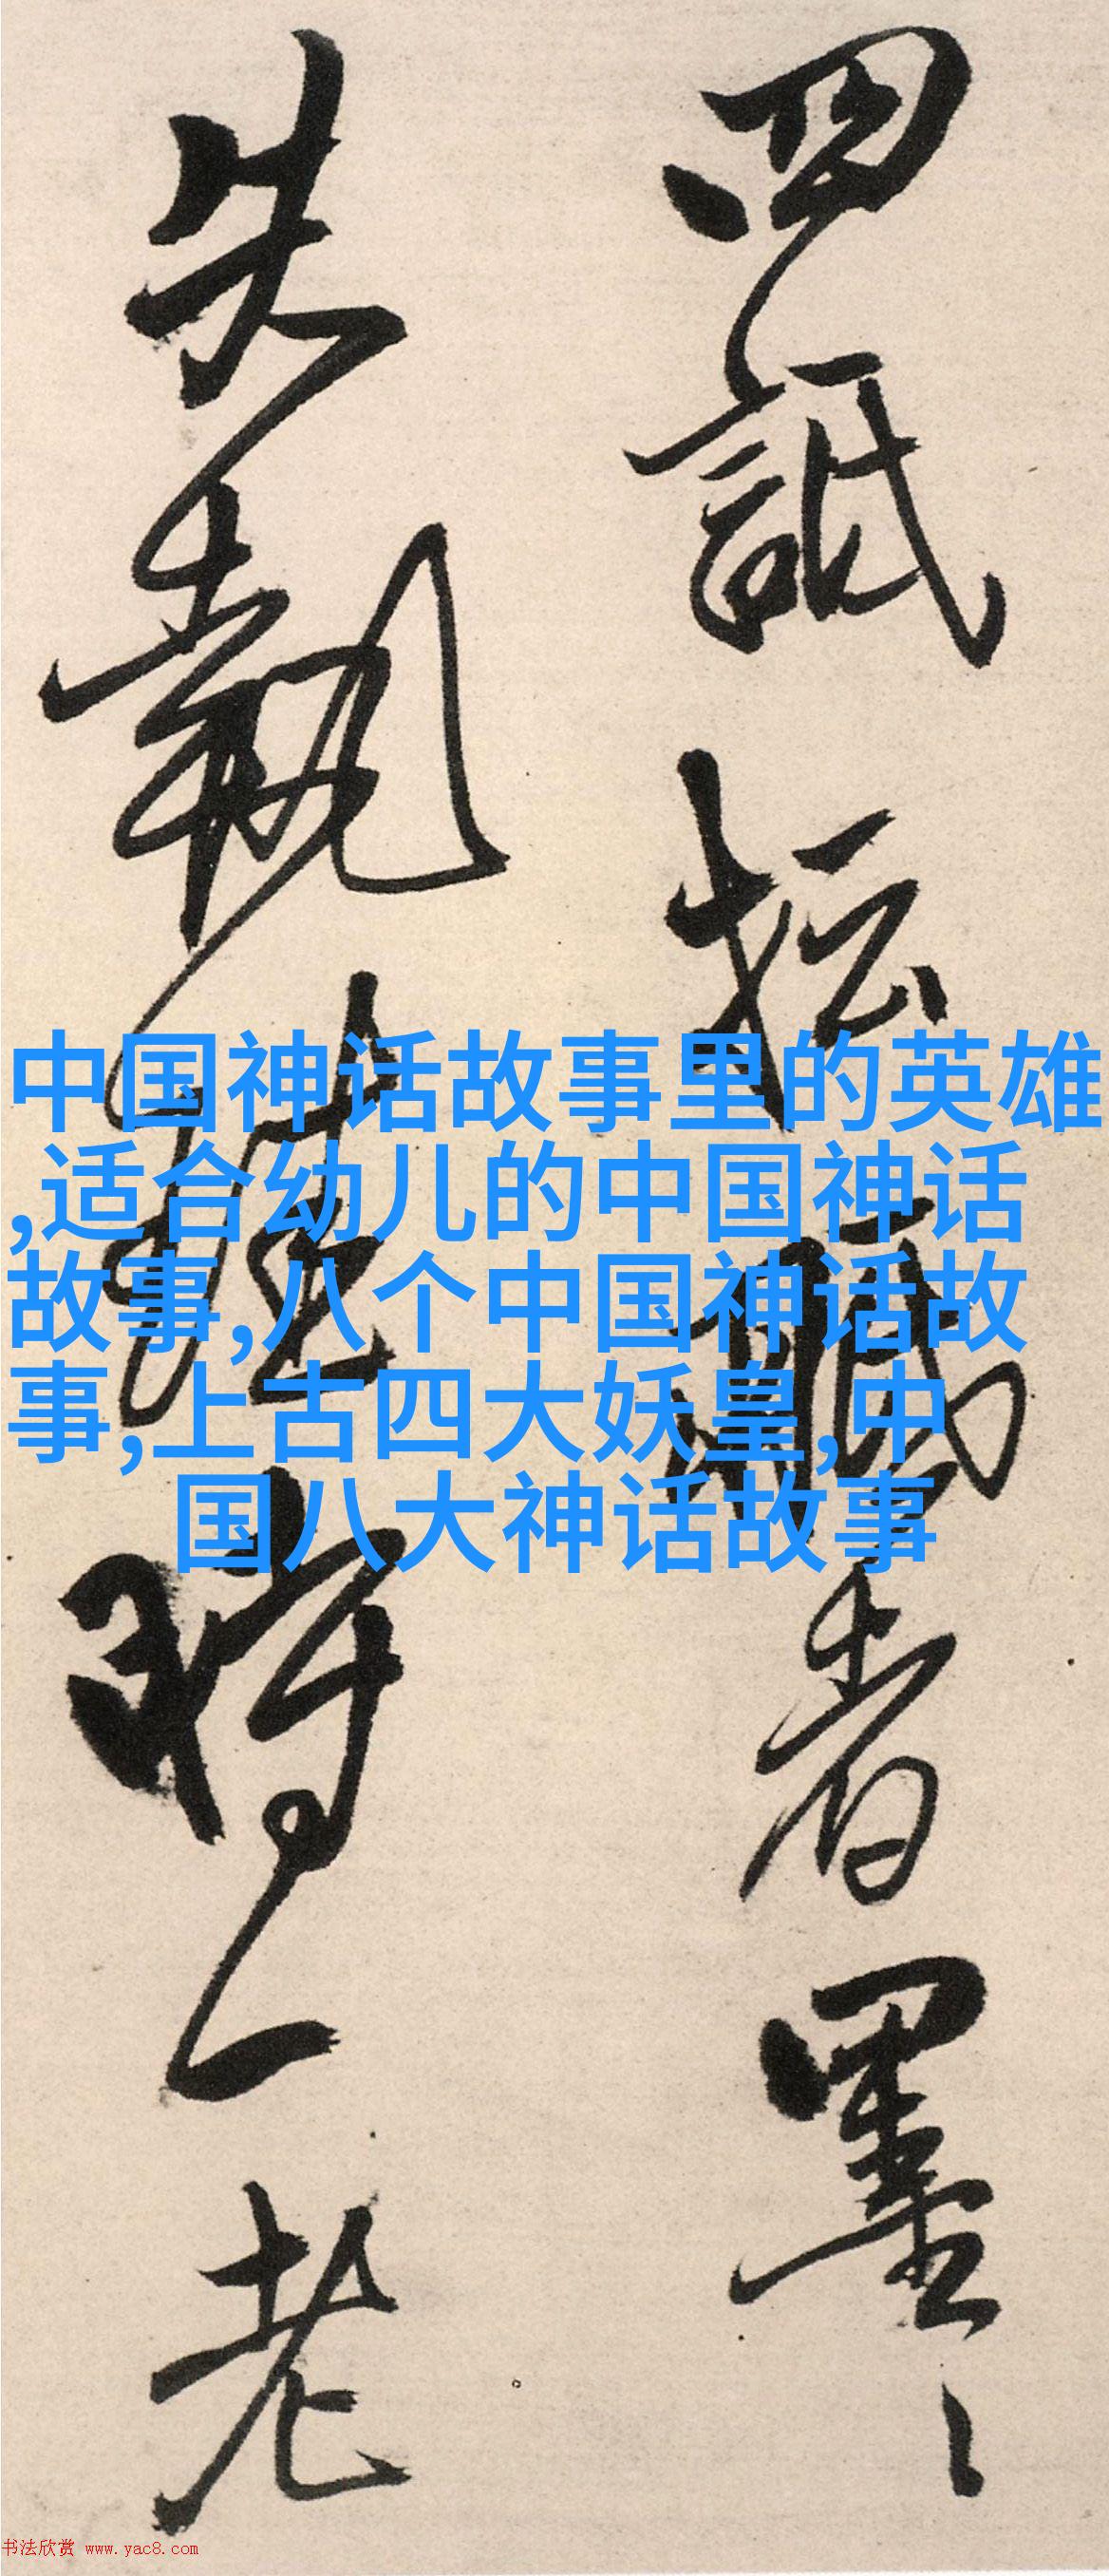 四詆抎
者墨
失執
時一老
中国神话故事里的英雄
,适合幼儿的中国神话
故事,八个中国神话故
事,上古四大妖皇,中
国八大神话故事
书法欣赏 www.yac8.com